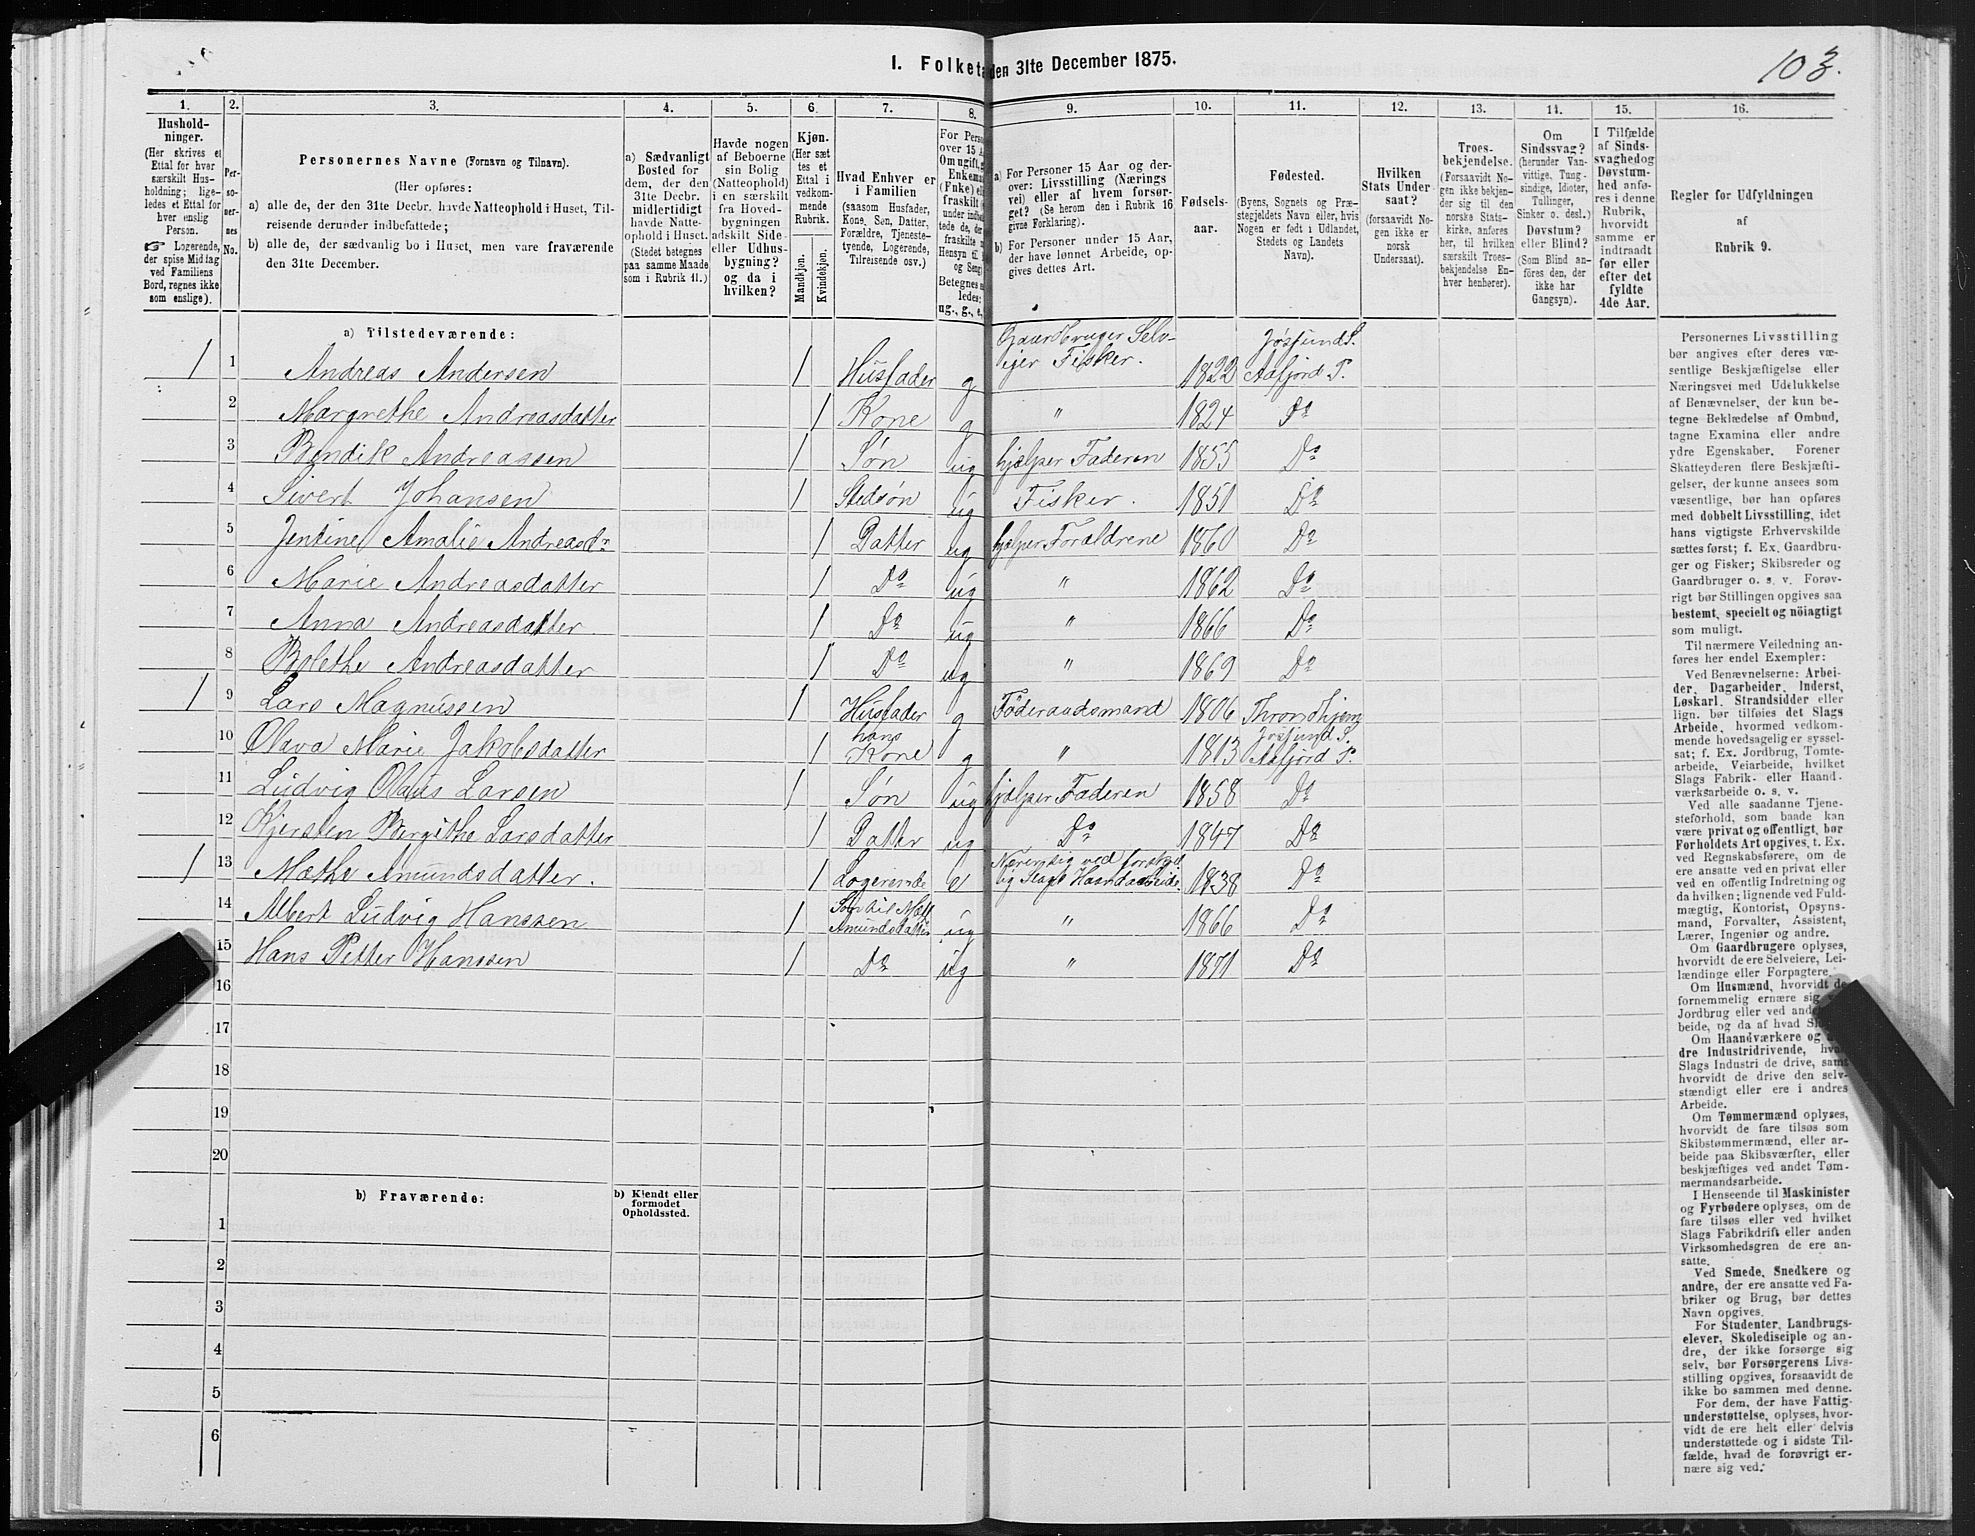 103.
I. Folketa
den 31te December 1875.
1. 2. 3. 4. 5. 6. 7. 8. 9. 10. 11. 12. 13. 14. 15. 16.
Hushold-
ninger.
(Her skrives et
Ettal for hver
særskilt Hus-
holdning; lige-
ledes et Ettal for
hver enslig
Person.
☞ Logerende,
der spise Middag
ved Familiens
Bord, regnes ikke
som enslige).
Per-
so-
ner-
nes
No.
Personernes Navne (Fornavn og Tilnavn).
(Her opføres:
a) alle de, der den 31te Decbr. havde Natteophold i Huset, Til-
reisende derunder indbefattede;
b) alle de, der sædvanlig bo i Huset, men vare fraværende
den 31te December.
a) Sædvanligt
Bosted for
dem, der den
31te Decbr.
midlertidigt
havde Natte-
ophold i Huset.
(Stedet betegnes
paa samme Maade
som i Rubrik 11.)
Havde nogen
af Beboerne
sin Bolig
(Natteophold)
i en særskilt
fra Hoved-
bygningen
adskilt Side-
eller Udhus-
bygning?
og da i
hvilken?
Kjøn.
(Her sæt
tes et
Ettal i
vedkom-
mende
Rubrik.
Mandkjøn.
Kvindekjøn.
Hvad Enhver er
i Familien
(saasom Husfader,
Kone, Søn, Datter,
Forældre, Tjeneste-
tyende, Logerende,
Tilreisende osv.)
For Pers
over 15 A
Om ugift, g
Enkema
(Fnke) el
fraskilt
under indb
tede de, d
fraskilte
Hensyn til
og Seng
Betegnes s
ledes:
ug., g., e,
a) For Personer 15 Aar og der-
over: Livsstilling (Nærings
vei) eller af hvem forsør-
get? (Se herom den i Rubrik 16
givne Forklaring).
b) For Personer under 15 Aar,
der have lønnet Arbeide, op-
gives dettes Art.
Fødsels-
aar.
Fødested.
(Byens, Sognets og Præ-
stegjeldets Navn eller, hvis
Nogen er født i Udlandet,
Stedets og Landets
Navn).
Hvilken
Stats Under-
saat?
(forsaavidt No-
gen ikke er
norsk
Undersaat).
Troes-
bekjendelse.
(Forsaavidt No-
gen ikke bekjen-
der sig til den
norske Stats-
kirke, anføres
her, til hvilken
særskilt Troes-
bekjendelse En-
hver henhører).
Om
Sindssvag?
(herunder Van-
vittige, Tung-
sindige, Idioter,
Tullinger,
Sinker o. desl.)
Døvstum?
eller Blind?
(Som Blind an-
føres den, der
ikke har
Gangsyn).
I Tilfælde
af Sinds-
svaghed og
Døvstum-
hed anfø-
res i denne
Rubrik,
hvorvidt
samme er
indtraadt
før eller
efter det
fyldte
4de Aar.
Regler for Udfyldningen
af
Rubrik 9.
a) Tilstedeværende:
1 1 Andreas Andersen 1 Husfader g Gaardbruger Selv-
ejer Fisker. 1822 Jøssund S.
Aafjord P.
2 Margrethe Andreasdatter 1 Kone g " 1824 Do
3 Bendik Andreassen 1 Søn ug hjælper Faderen 1855 Do
4 Sivert Johansen 1 Stedsøn ug Fisker. 1851 Do
5 Jentine Amalie Andreasdr 1 Datter ug hjelper Foraldrene 1860 Do
6 Marie Andreasdatter 1 Do ug " 1862 Do
7 Anna Andreasdatter. 1 Do ug " 1866 Do
8 Bolethe Andreasdatter 1 Do ug " 1869 Do
1 9 Lars Magnussen 1 Husfader g Föderaadsmand 1806 Throndhjem
10 Olava Marie Jakobsdatter 1 hans
Kone g " 1813 Jøssund S.
Aafjord P.
11 Ludvig Olaus Larsen 1 Søn ug hjælper Faderen 1858 Do
12 Kjersten Bergithe Larsdatter 1 Datter ug Do 1847 Do
1 13 Mæthe Amundsdatter. 1 Logerende e Nærer sig ved forskjel
ig Slags Haandarbeide. 1838 Do
14 Albert Ludvig Hanssen 1 Søn til Mæt
Amundsdatter ug " 1866 Do
15 Hans Petter Hanssen 1 Do ug " 1871 Do
16
17
18
19
20
b) Fraværende:
b) Kjendt eller
formodet
Opholdssted.
1
2
3
4
5
6
Personernes Livsstilling
bør angives efter deres væ-
sentlige Beskjæftigelse eller
Næringsvei med Udelukkelse
af Benævnelser, der kun be-
tegne Beklædelse af Ombud,
tagne Examina eller andre
ydre Egenskaber. Forener
Skatteyderen flere Beskjæfti-
gelser, der kunne ansees som
væsentlige, bør han opføres
med dobbelt Livsstilling, idet
hans vigtigste Erhvervskilde
sættes først; f. Ex. Gaardbru-
ger og Fisker; Skibsreder og
Gaardbruger o. s. v. Forøv-
rigt bør Stillingen opgives saa
bestemt, specielt og nöiagtigt
som muligt.
Til nærmere Veiledning an-
føres her endel Exempler:
Ved Benævnelserne: Arbei-
der, Dagarbeider, Inderst,
Løskarl, Strandsidder eller
lign. bør tilføies det Slags
Arbeide, hvormed vedkom-
mende hovedsagelig er syssel-
sat; f. Ex. Jordbrug, Tomte-
arbeide, Veiarbeide, hvilket
Slags Fabrik- eller Haand-
værksarbeide o. s. v.
Ved alle saadanne Tjene-
steforhold, som baade kan
være privat og offentligt, bør
Forholdets Art opgives, t. Ex.
ved Regnskabsførere, om de
ere ansatte ved en privat eller
ved en offentlig Indretning og
da hvilken; lignende ved Fuld-
mægtig, Kontorist, Opsyns-
mand, Forvalter, Assistent,
Lærer, Ingeniør og andre.
Om Gaardbrugere oplyses,
hvorvidt de ere Selveiere, Lei-
lændinge eller Forpagtere.
Om Husmænd, hvorvidt de
fornemmelig ernære sig
Jordbrug eller ved and
beide, og da af hvad
Om Haandværkere og
dre Industridrivende,
Slags Industri de drive, samt
hvorvidt de drive den selv-
stændigt eller ere i andres
Arbeide.
Om Tømmermænd oplyses,
hvorvidt de fare tilsøs som
Skibstømmermænd, eller ar-
beide paa Skibsværfter, eller
beskjæftiges ved andet Tøm-
mermandsarbeide.
I Henseende til Maskinister
og Fyrbødere oplyses, om de
fare tilsøs eller ved hvilket
Slags Fabrikdrift eller anden
Virksomhedsgren de ere an-
satte.
Ved Smede, Snedkere og
andre, der ere ansatte ved Fa-
briker og Brug, bør dettes
Navn opgives.
For Studenter, Landbrugs-
elever, Skoledisciple og an-
dre, der ikke forsørge sig
selv, bør Forsørgerens Livs-
stilling opgives, forsaavidt de
ikke bo sammen med denne.
For dem, der have Fattig-
understøttelse, oplyses, hvor-
vidt de ere helt eller delvis
understøttede og i sidste Til-
fælde, hvad de forøvrigt er-
nære sig ved.